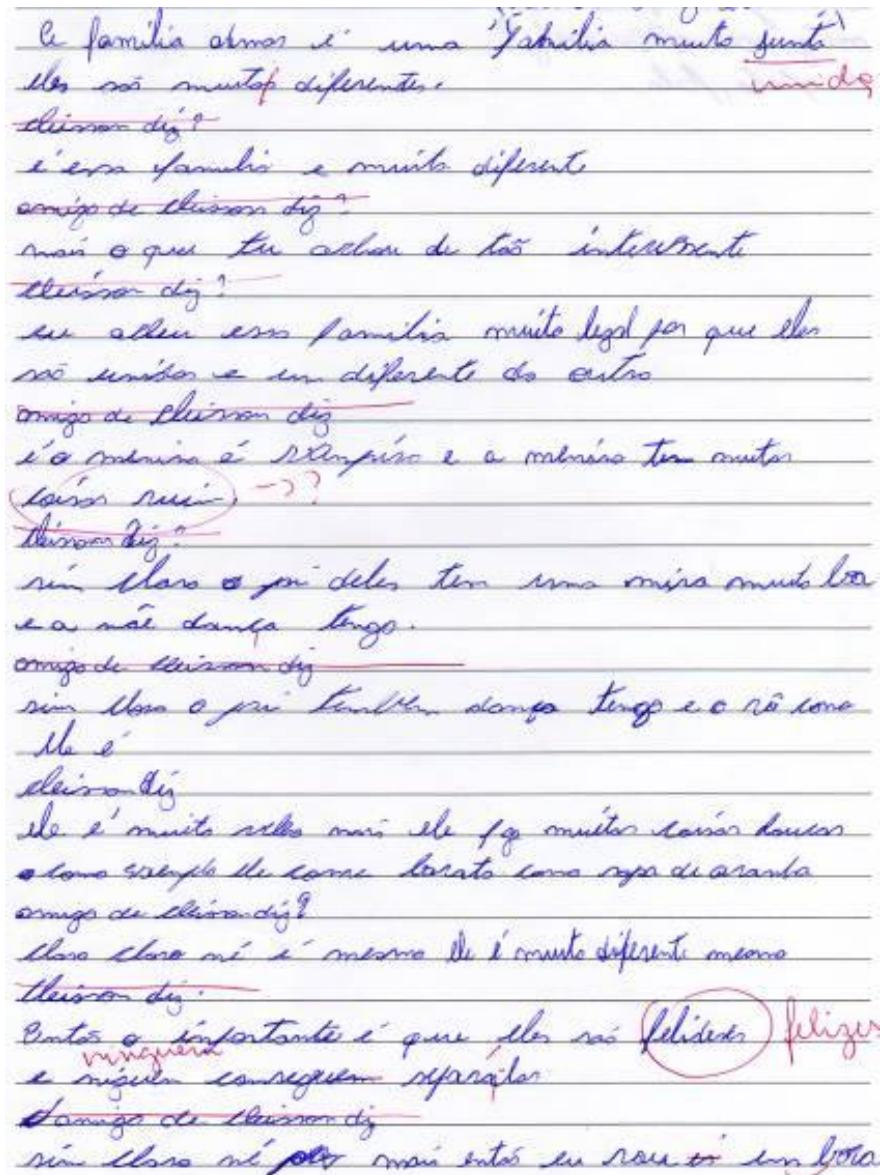 A família admas é uma família muito junta
unida
eles são muito diferentes.
cleisson diz?
é essa familia e muito diferente
amigo de cleisson diz?
mais o que tu achou de tão interessante
cleisson diz?
eu achei essa família muito legal por que eles
são unidos e um diferente do outro
amigo de cleisson diz
é o menino é vampiro e a menina tem muitas
coisas ruin -> ?
cleisson diz?
sim claro o pai deles tem uma mira muito boa
e a mãe dança tango.
amigo de cleisson diz
sim claro o pai também dança tango e o vô como
ele é
cleisson diz
ele é muito velho mais ele faz muitas coisas loucas
como exemplo ele come barata come sopa de aranha
amigo de cleisson diz?
claro claro né é mesmo ele é muito diferente mesmo
cleisson diz.
Então o importante é que eles são felideses felizes
ninguém
e niguem conseguem separálos
amigo de cleisson diz
sim claro né mais então eu vou em bora